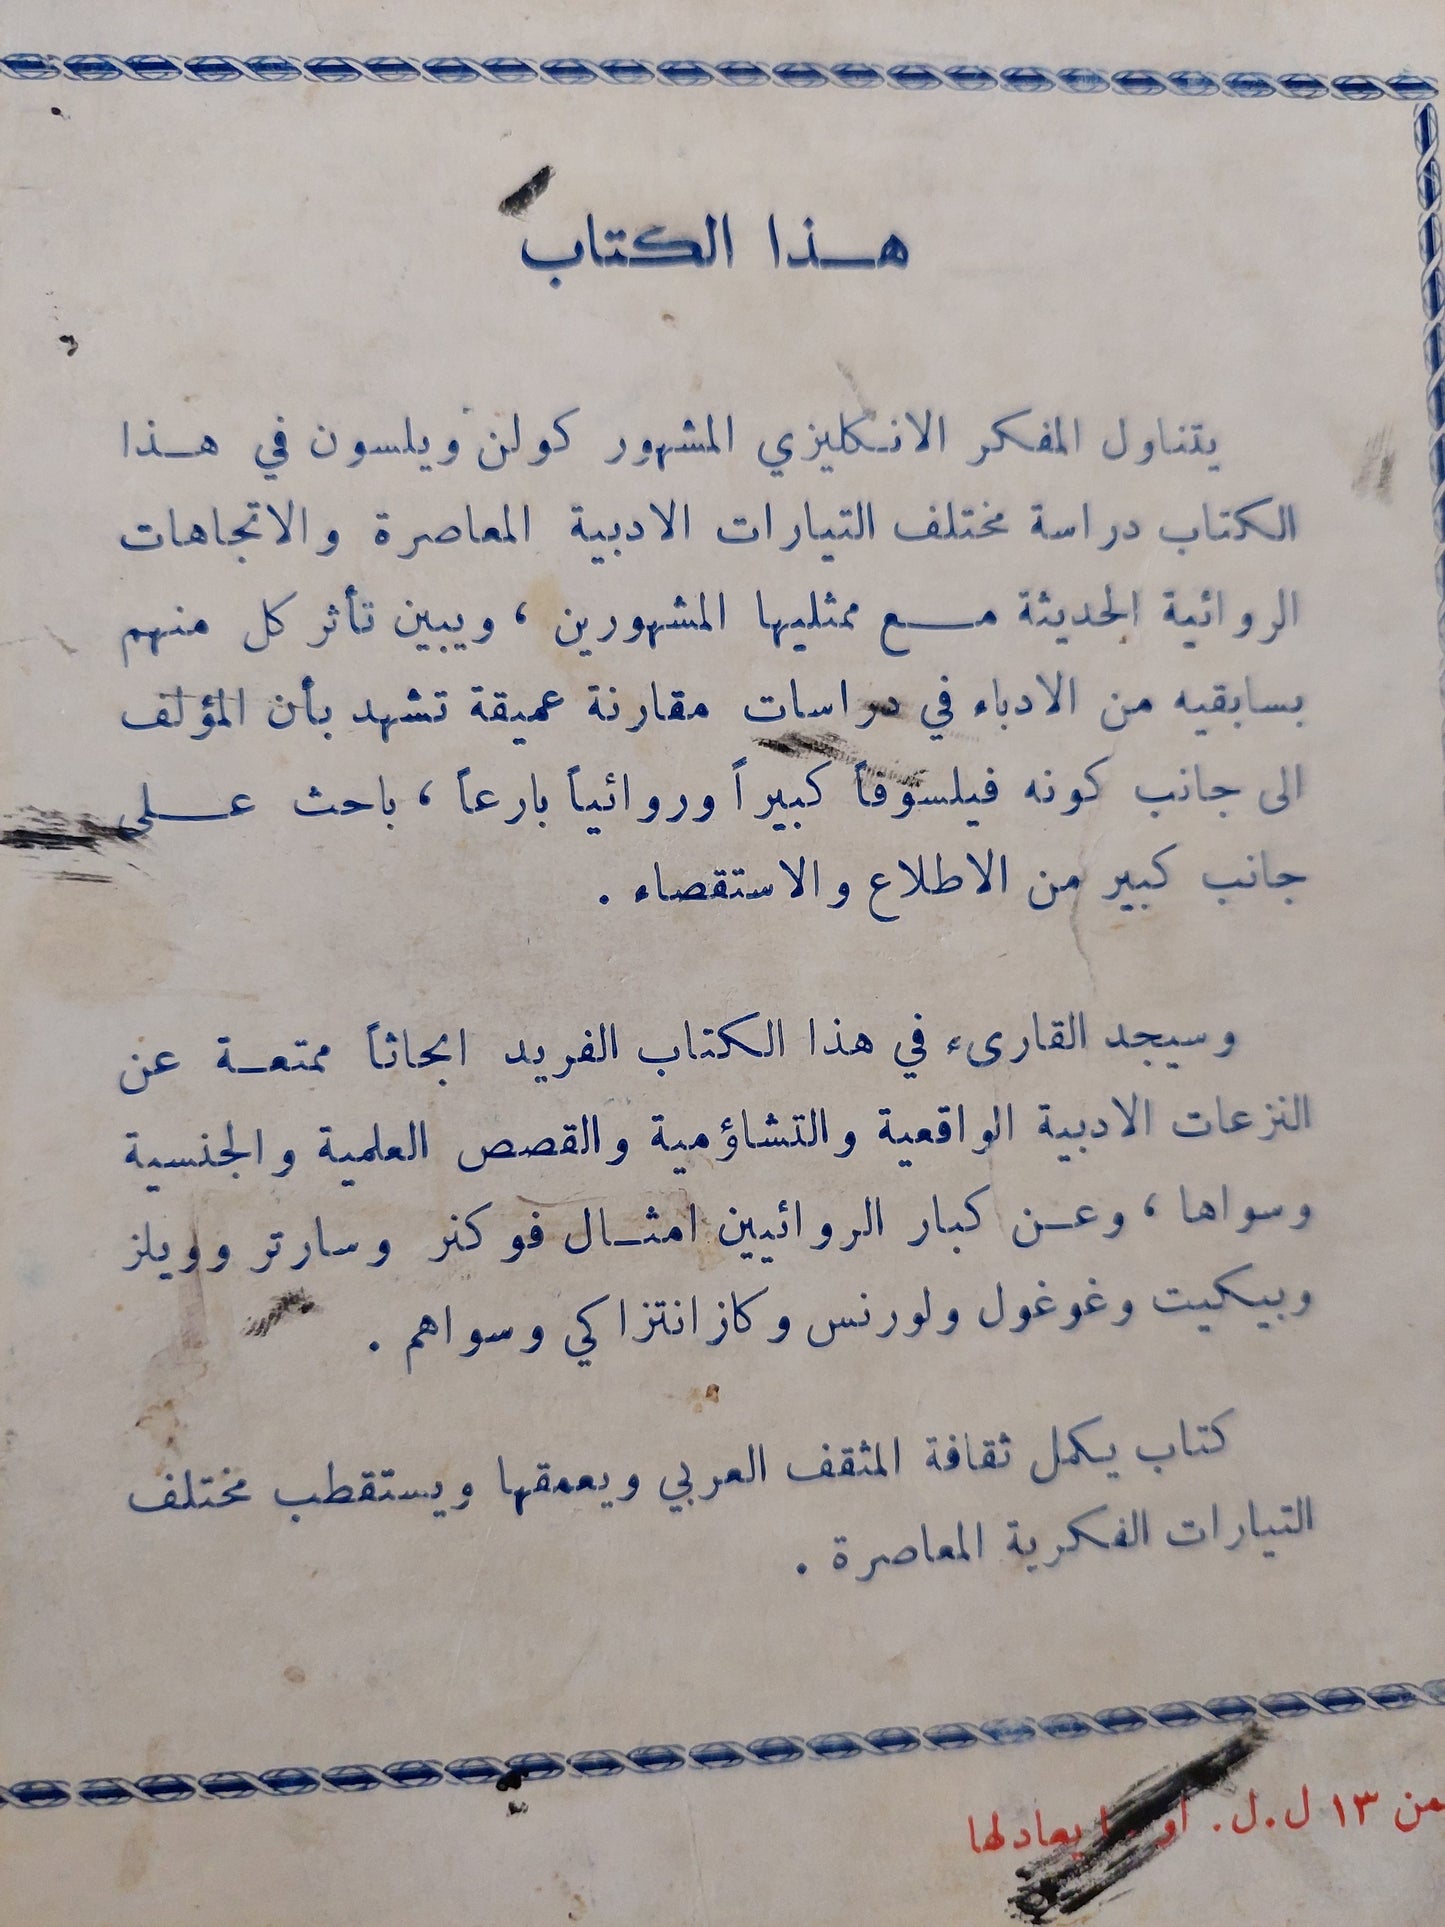 هـذا الكتاب
يتناول المفكر الانكليزي المشهور كولن ويلسون في هـذا
الكتاب دراسة مختلف التيارات الادبية المعاصرة والاتجاهات
الروائية الحديثة مـع ممثليها المشهورين ، ويبين تأثر كل منهم
بسابقيه من الادباء في دراسات مقارنة عميقة تشهد بأن المؤلف
الى جانب كونه فيلسوفاً كبيراً وروائياً بارعاً ، باحث عـلى
جانب كبير من الاطلاع والاستقصاء .
وسيجد القارىء في هذا الكتاب الفريد ابحاثاً ممتعـة عن
النزعات الادبية الواقعية والتشاؤمية والقصص العلمية والجنسية
وسواها ، وعـن كبار الروائيين امثـال فوكنر وسارتر وويلز
وبيكيت وغوغول ولورنس وكازانتزاكي وسواهم .
كتاب يكمل ثقافة المثقف العربي ويعمقها ويستقطب مختلف
التيارات الفكرية المعاصرة .
١٣ ل.ل. او يعادلها